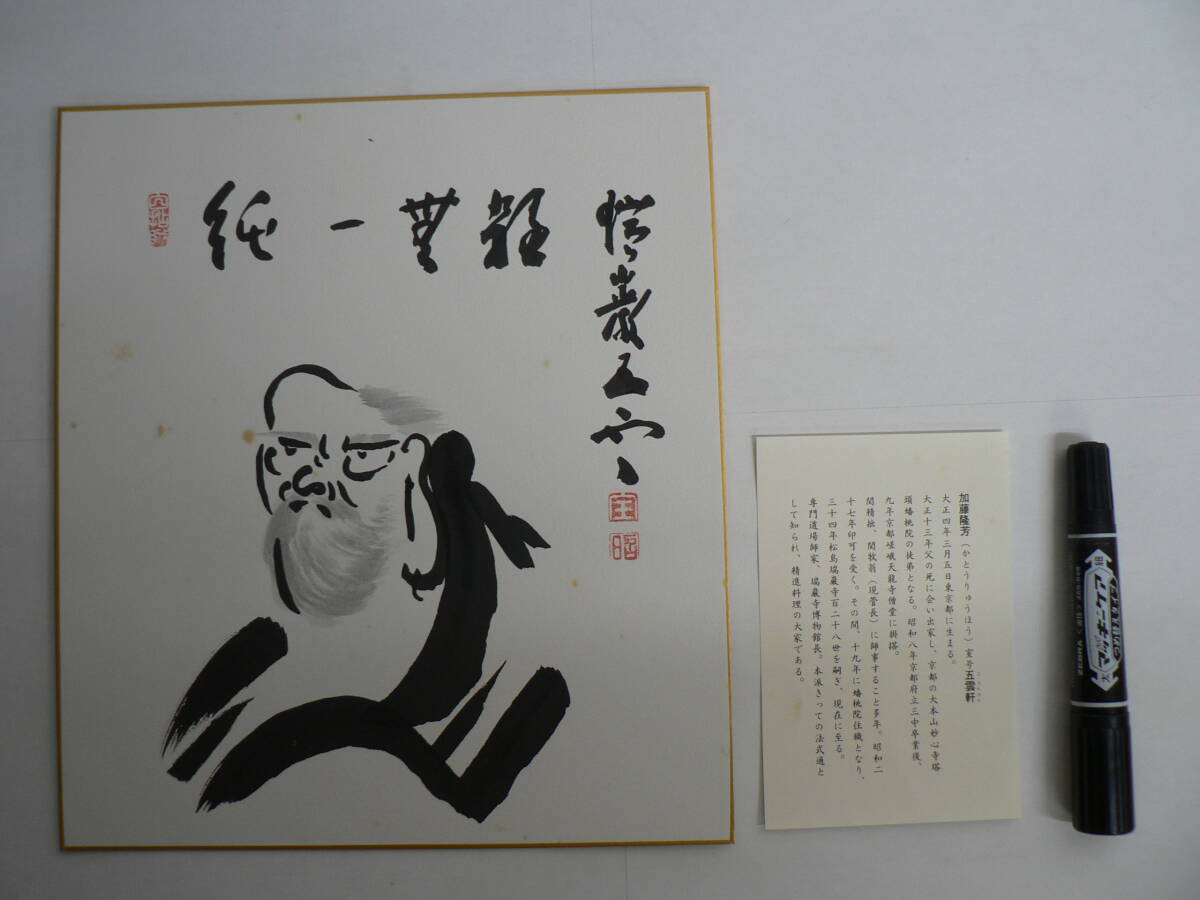 純一無雜
瑞巌五雲
加藤隆芳（かとうりゅうほう）室号五雲軒
大正四年三月五日東京都に生まる。
大正十三年父の死に会い出家し、京都の大本山妙心寺塔
頭蟠桃院の徒弟となる。昭和八年京都府立三中卒業後、
九年京都嵯峨天龍寺僧堂に掛搭。
関精拙、関牧翁（現管長）に師事すること多年。昭和二
十七年印可を受く。その間、十九年に蟠桃院住職となり、
三十四年松島瑞巌寺百二十八世を嗣ぎ、現在に至る。
専門道場師家、瑞巌寺博物館長。本派きっての法式通と
して知られ、精進料理の大家である。
細
マッキーケア
太